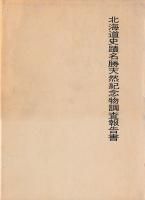 北海道史蹟名勝天然記念物調査報告書